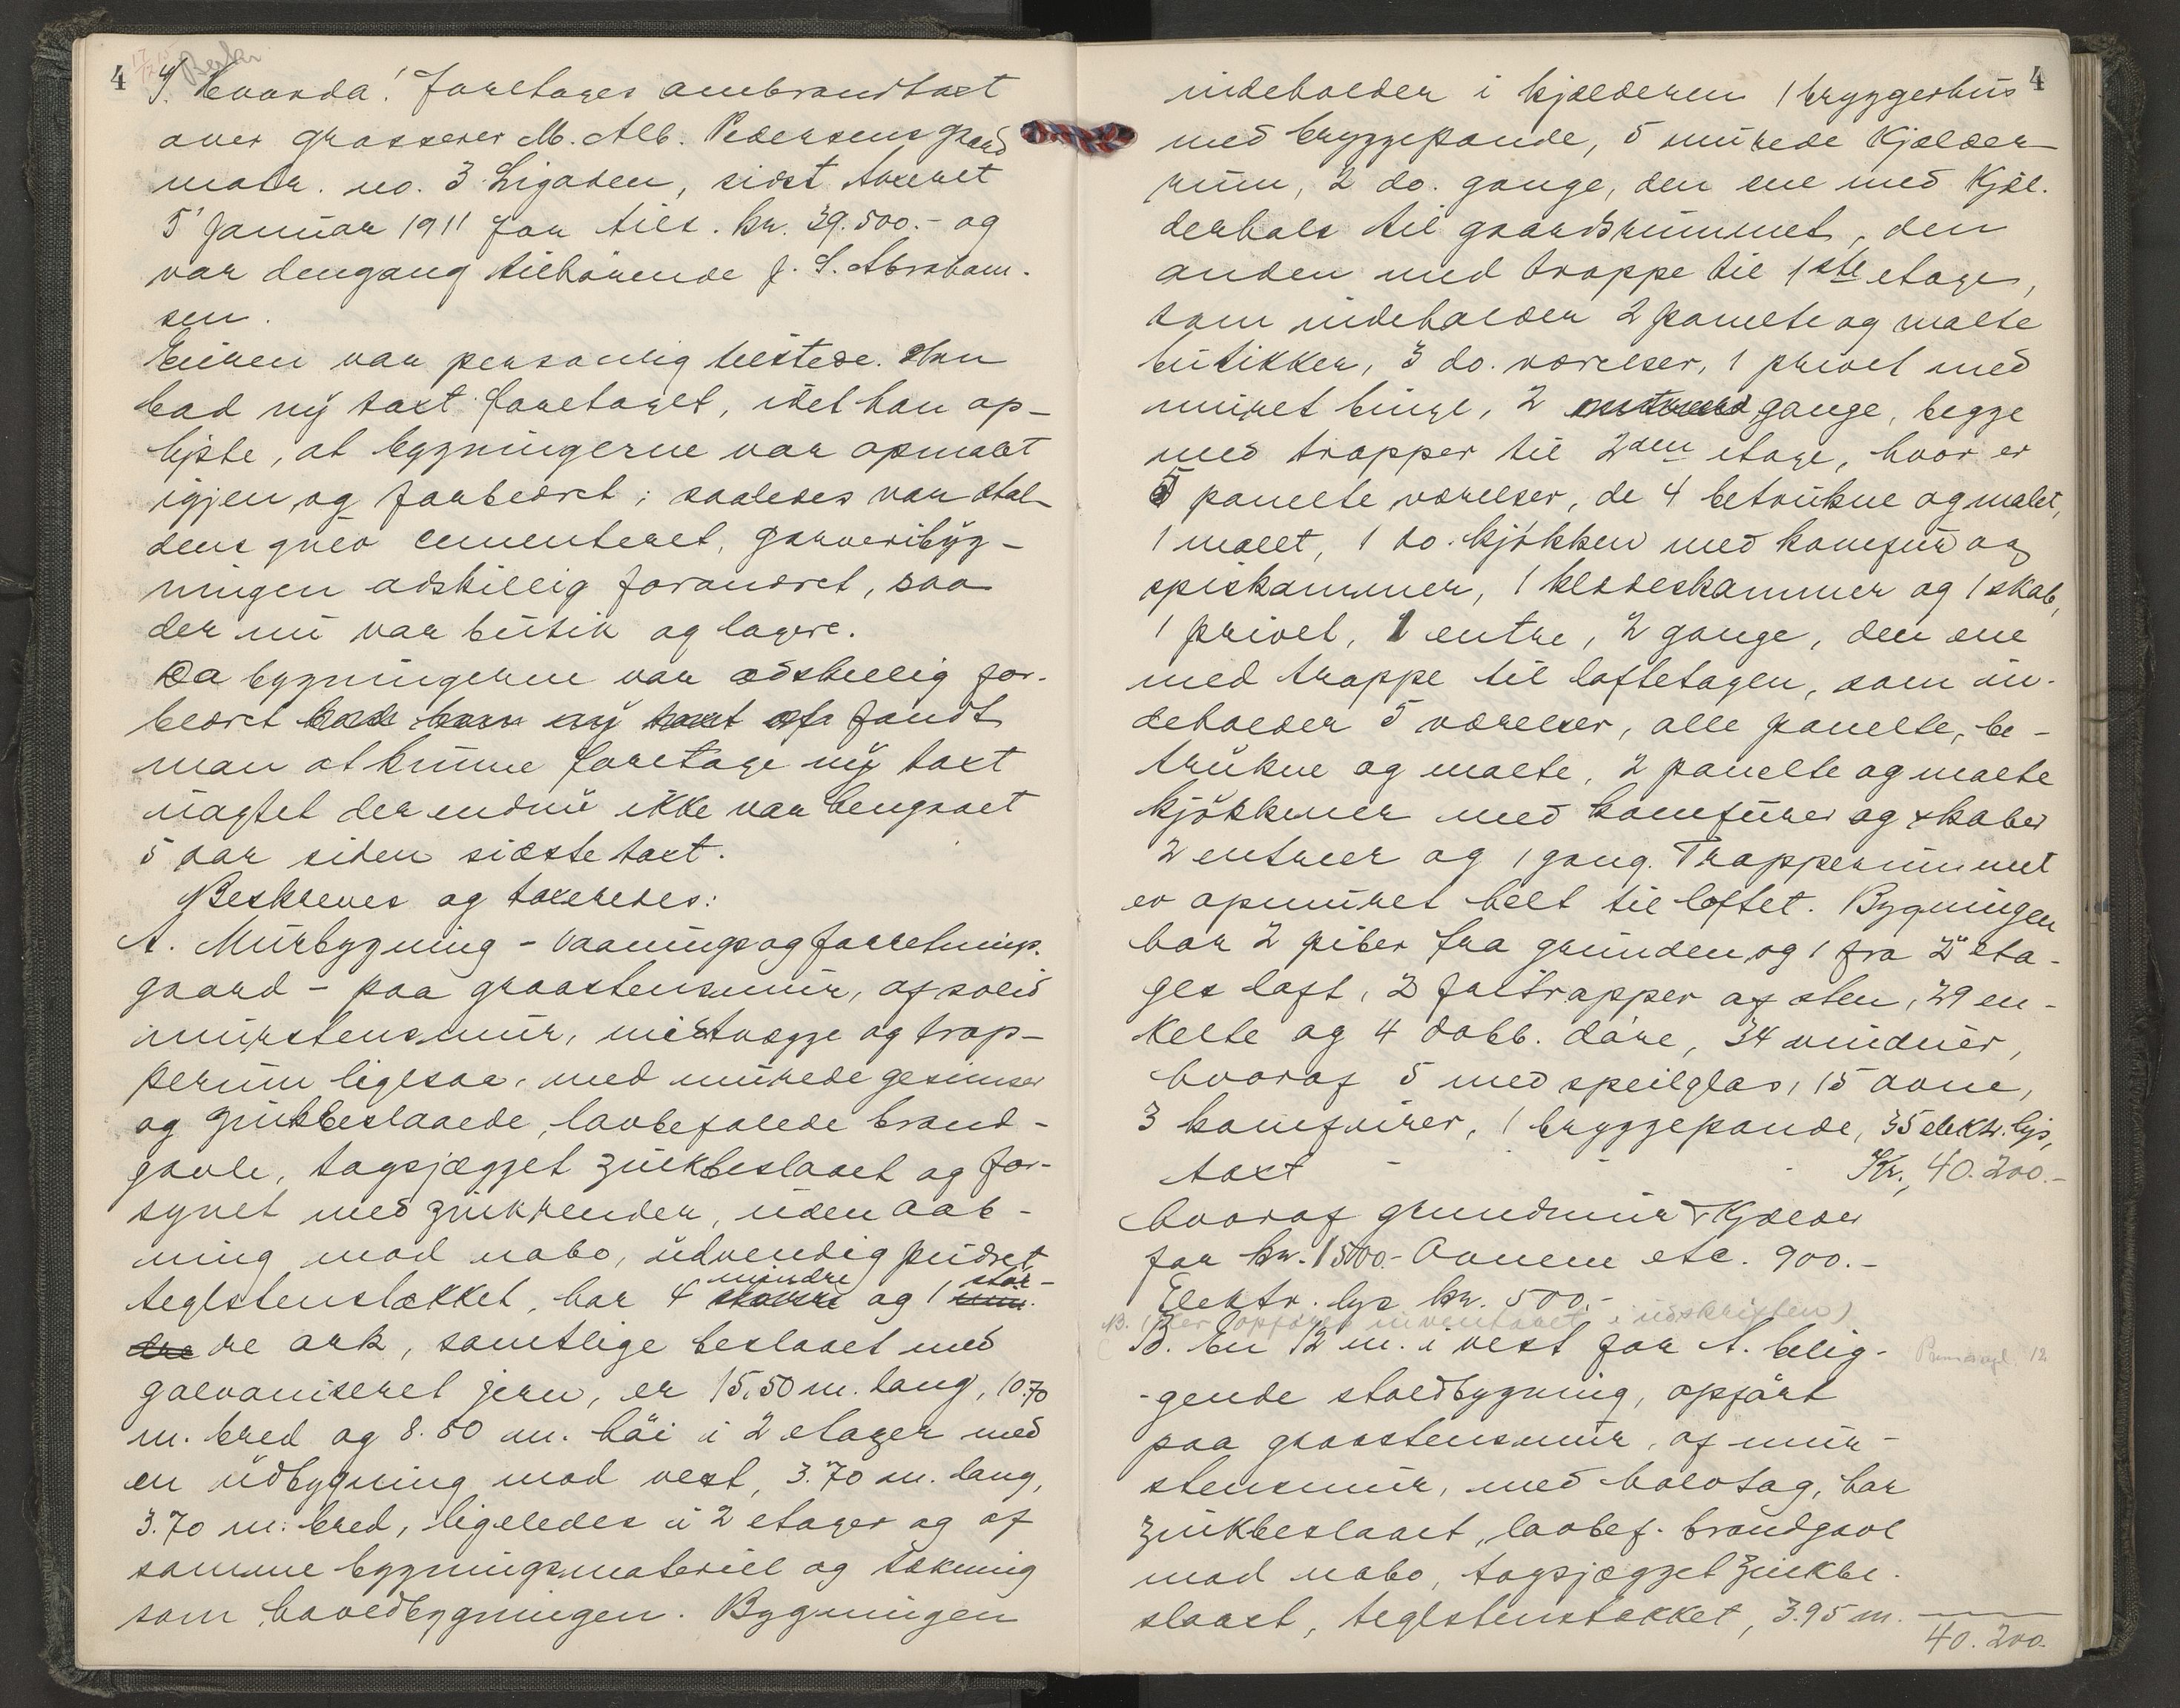 4
S. Kvanda! foretoges ombrandtaxt
over grosserer M. Alb. Pedersens gaard
matr. no. 3 Ligaden, sidst taxeret
5' Januar 1911 for tils. kr. 39.500.- og
var dengang tilhörende J. S. Abraham-
sen.
Eieren var personlig tilstede. Han
bad ny taxt foretaget, idet han op-
lyste, at bygningerne var opmalt
igjen og forbedret; saaledes var stal-
dens gulv cementeret, garveribyg-
ningen adskillig forandret, saa
der nu var butik og lagere.
Da bygningerne var adskillig for-
bedret fandt
man at kunne foretage ny taxt
uagtet der endnu ikke var hengaaet
5 aar siden sidste taxt.
Beskreves og taxeredes:
A. Murbygning - vaanings og forretnings-
gaard - paa graastensmur, af solid
murstensmur, midtvægge og trap-
perum ligesaa, med murede gesimser
og zinkbeslaaede, lovbefalede brand-
gavle, tagsjægget zinkbeslaaet og for-
synet med zinkrender, uden aab-
ning mod nabo, udvendig pudset,
teglstenstækket, har 4 mindre og 1 stör-
re ark, samtlige beslaaet med
galvaniseret jern, er 15,50 m. lang, 10.70
m. bred og 8.50 m. höi i 2 etager med
en udbygning mod vest, 3.70 m. lang,
3.70 m. bred, ligeledes i 2 etager og af
samme bygningsmateriel og tækning
som hovedbygningen. Bygningen
4
indeholder i kjælderen 1 bryggerhus
med bryggepande, 5 murede kjælder
rum, 2 do. gange, den ene med kjæl-
derhals til gaardsrummet, den
anden med trappe til 1ste etage,
som indeholder 2 panelte og malte
butikker, 3 do. værelser, 1 privet med
muret binge, 2 gange, begge
med trapper til 2den etage, hvor er
5 panelte værelser, de 4 betrukne og malet,
1 malet, 1 do. kjökken med komfur og
spiskammer, 1 klædeskammer og 1 skab,
1 privet, 1 entre, 2 gange, den ene
med trappe til loftetagen, som in-
deholder 5 værelser, alle panelte, be-
trukne og malte, 2 panelte og malte
kjökkener med komfurer og skaber
2 entreer og 1 gang. Trapperummet
er opmuret helt til loftet. Bygningen
har 2 piber fra grunden og 1 fra 2' eta-
ges loft, 2 fritrapper af sten, 29 en-
kelte og 4 dobb. döre, 34 vinduer,
hvoraf 5 med speilglas, 15 ovne,
3 komfurer, 1 bryggepande, 35 elektr. lys,
taxt - - - Kr. 40.200.-
hvoraf grundmur & kjælder
for kr. 1500.- Ovnene etc. 900.-
Elektr. lys kr. 500.-
NB. (Her opföres inventaret i udskriften)
B. En 12 m. i vest for A. belig-
-gende staldbygning, opfört
paa graastensmur, af mur-
stensmur, med halvtag, har
zinkbeslaaet, lovbef. brandgavl
mod nabo, tagsjægget zinkbe-
slaaet, teglstenstækket, 3.95 m.
40.200.